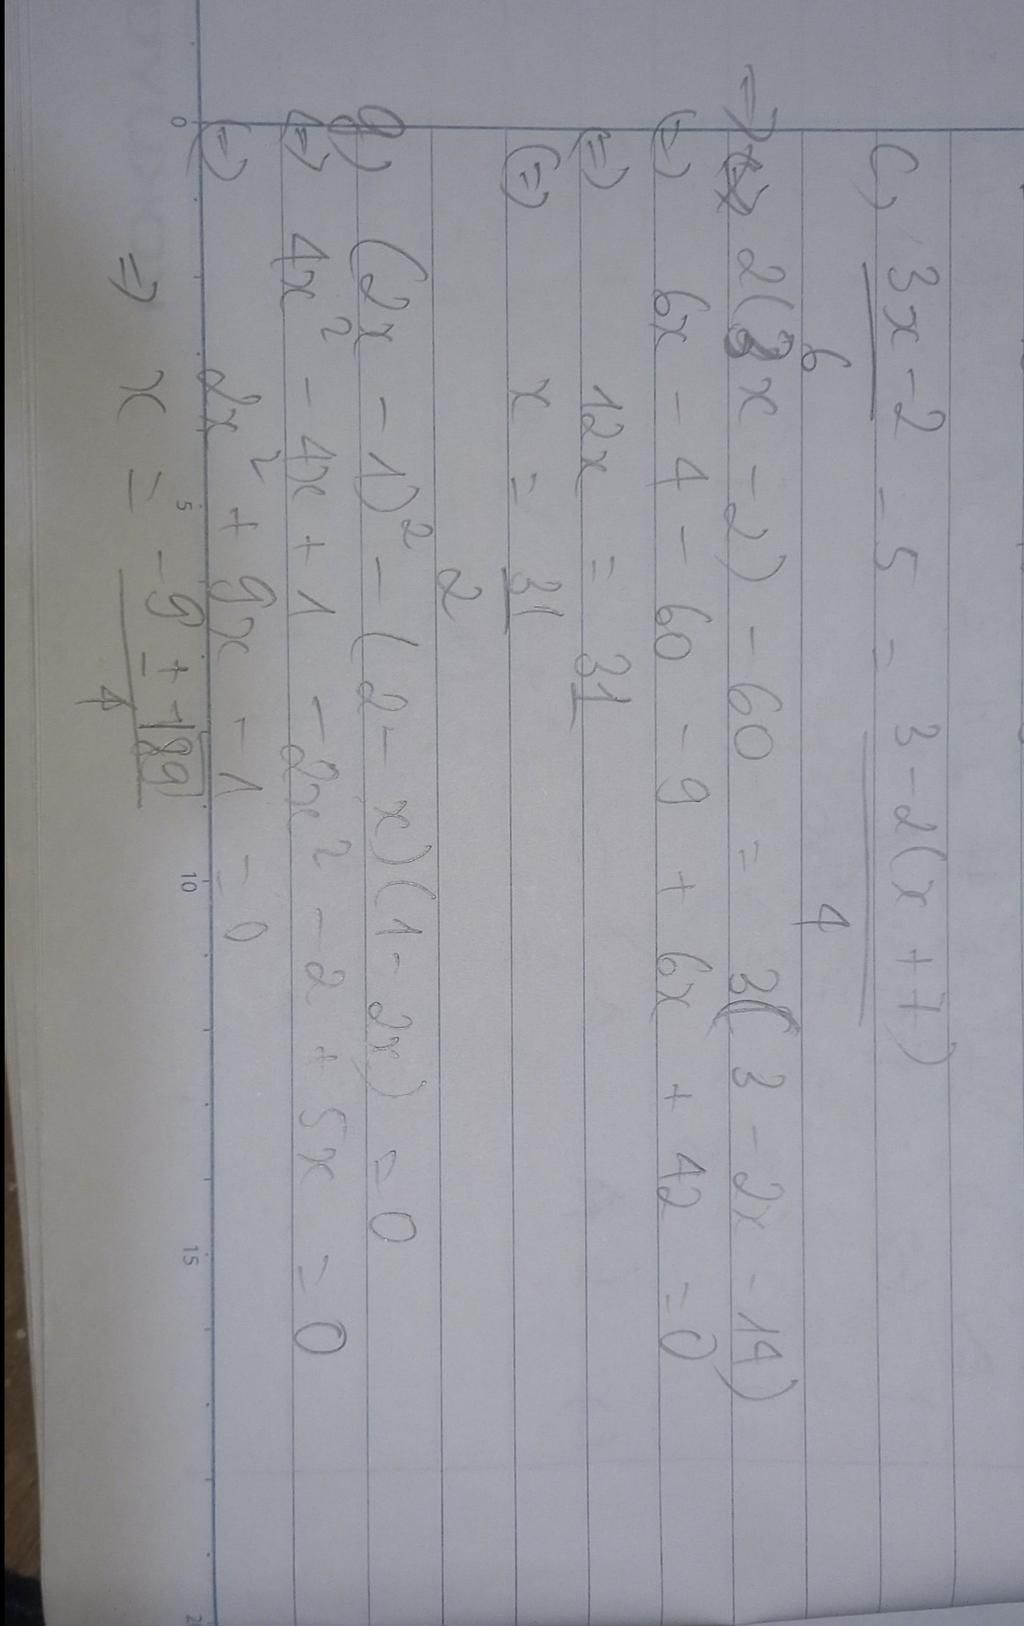 c) 3x - 2 - 5 = 3 - 2(x + 7)
6 4
=> 2(3x - 2) - 60 = 3(3 - 2x - 14)
(=) 6x - 4 - 60 - 9 + 6x + 42 = 0
(=) 12x = 31
(=) x = 31
2
g) (2x - 1)² - (2 - x)(1 - 2x) = 0
(=) 4x² - 4x + 1 - 2x² - 2 + 5x = 0
(=) 2x² + 9x - 1 = 0
=> x = -9 ± √89
4
0 5 10 15